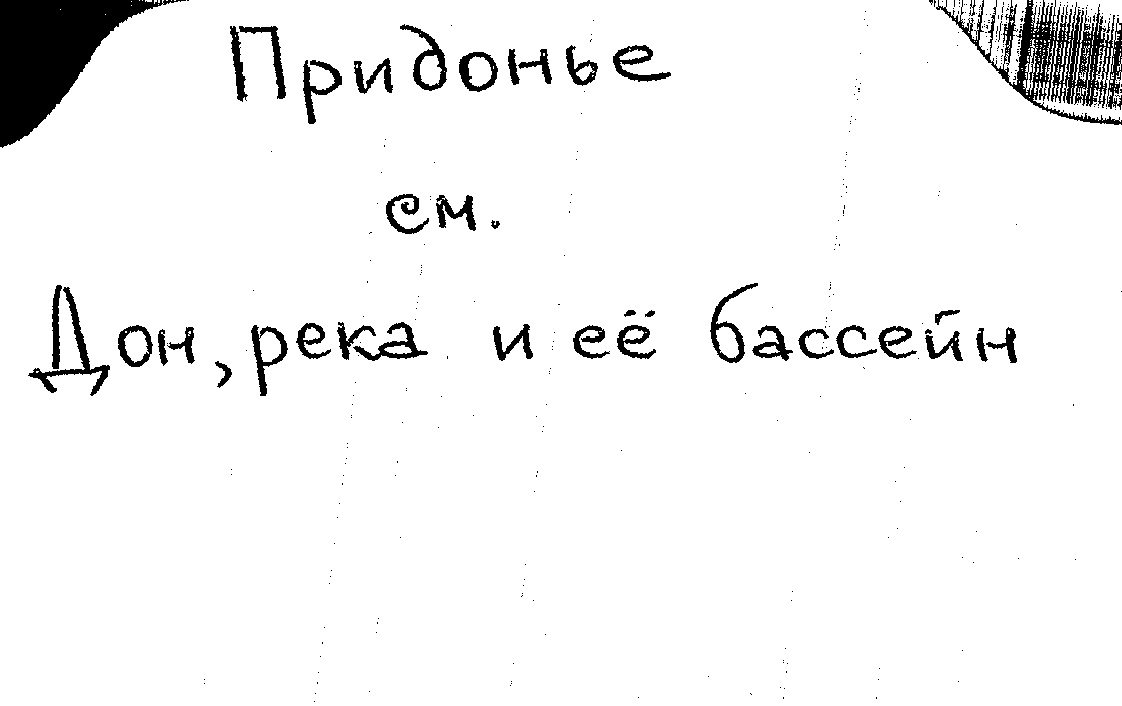 Придонье
см.
Дон, река и её бассейн